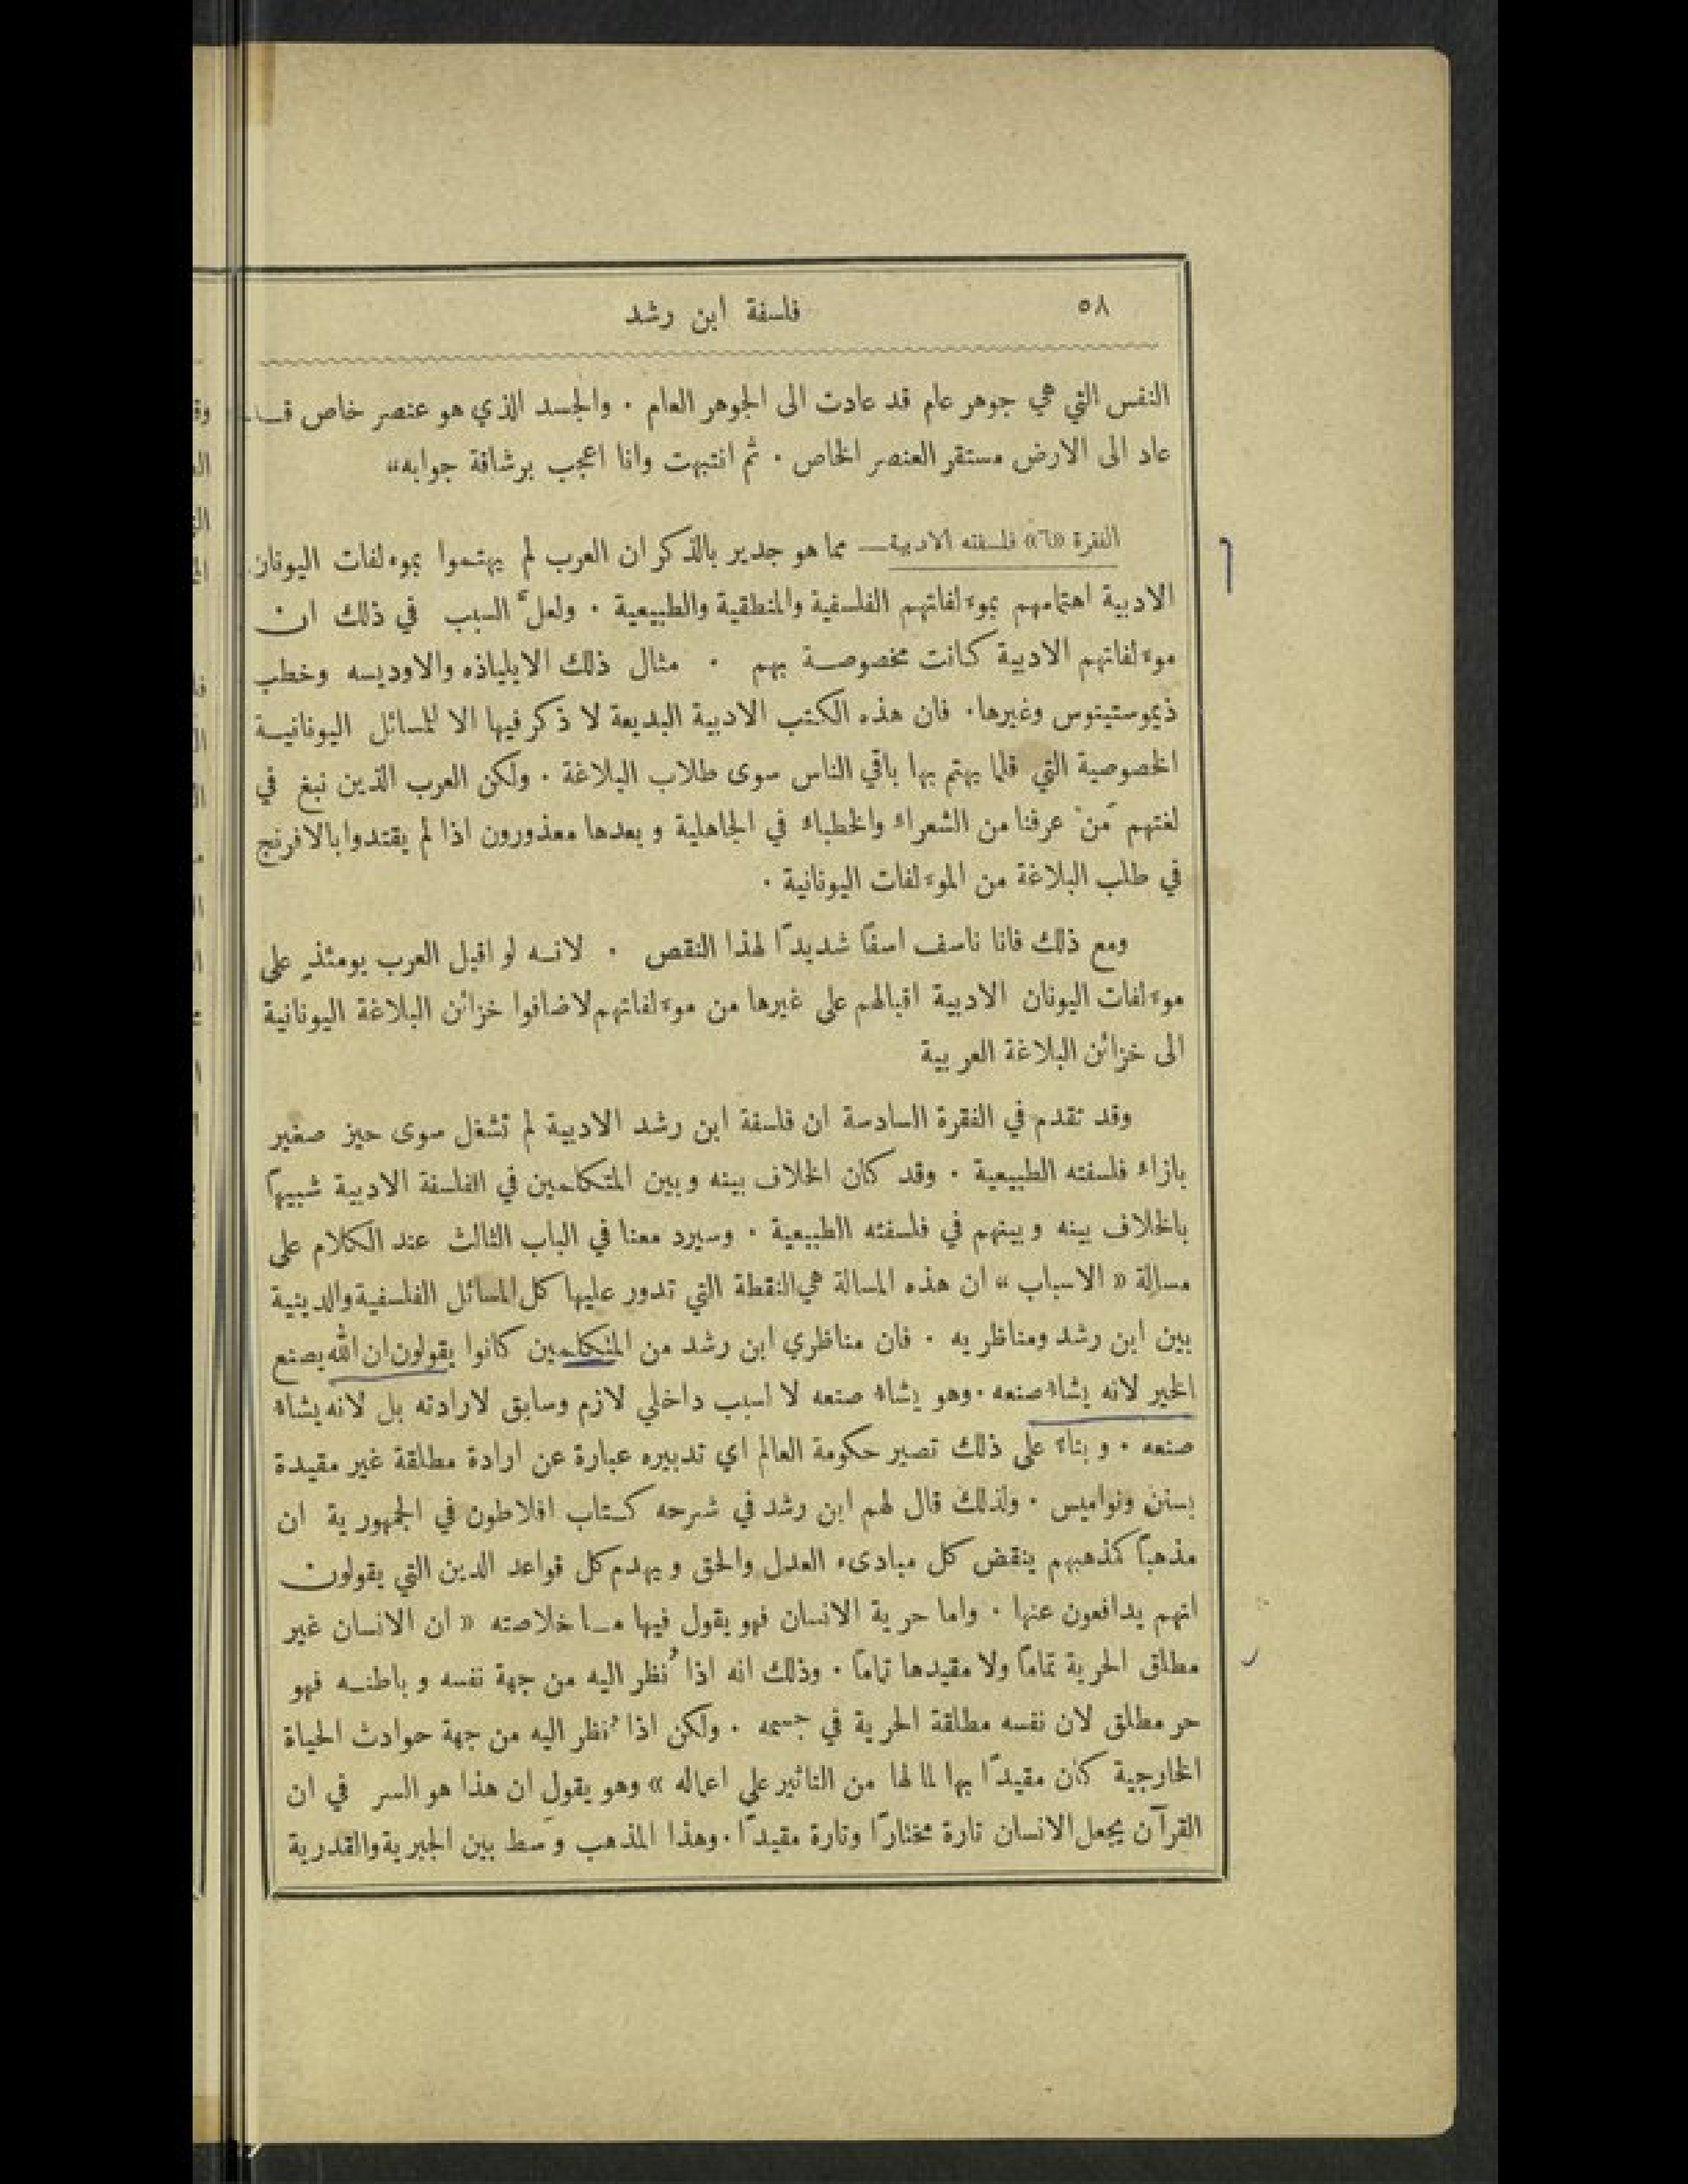 ٥٨
فلسفة ابن رشد
النفس التي هي جوهر عام قد عادت الى الجوهر العام . والجسد الذي هو عنصر خاص قد
عاد الى الارض مستقر العنصر الخاص . ثم انتبهت وانا اعجب برشاقة جوابه»
الفقرة «٦» فلسفته الادبية — مما هو جدير بالذكر ان العرب لم يهتموا بموءلفات اليونان
الادبية اهتمامهم بموءلفاتهم الفلسفية والمنطقية والطبيعية . ولعلَّ السبب في ذلك ان
موءلفاتهم الادبية كانت مخصوصة بهم . مثال ذلك الايلياذه والاوديسه وخطب
ذيموستينوس وغيرها . فان هذه الكتب الادبية البديعة لا ذكر فيها الا للمسائل اليونانية
الخصوصية التي قلما يهتم بها باقي الناس سوى طلاب البلاغة . ولكن العرب الذين نبغ في
لغتهم مَنْ عرفنا من الشعراء والخطباء في الجاهلية وبعدها معذورون اذا لم يقتدوا بالافرنج
في طلب البلاغة من الموءلفات اليونانية .
ومع ذلك فانا ناسف اسفًا شديدًا لهذا النقص . لانه لو اقبل العرب يومئذٍ على
موءلفات اليونان الادبية اقبالهم على غيرها من موءلفاتهم لاضافوا خزائن البلاغة اليونانية
الى خزائن البلاغة العربية
وقد تقدم في الفقرة السادسة ان فلسفة ابن رشد الادبية لم تشغل سوى حيز صغير
بازاء فلسفته الطبيعية . وقد كان الخلاف بينه وبين المتكلمين في الفلسفة الادبية شبيهًا
بالخلاف بينه وبينهم في فلسفته الطبيعية . وسيرد معنا في الباب الثالث عند الكلام على
مسالة « الاسباب » ان هذه المسالة هي النقطة التي تدور عليها كل المسائل الفلسفية والدينية
بين ابن رشد ومناظريه . فان مناظري ابن رشد من المتكلمين كانوا يقولون ان الله يصنع
الخير لانه يشاء صنعه . وهو يشاء صنعه لا لسبب داخلي لازم وسابق لارادته بل لانه يشاء
صنعه . وبناءً على ذلك تصير حكومة العالم اي تدبيره عبارة عن ارادة مطلقة غير مقيدة
بسنن ونواميس . ولذلك قال لهم ابن رشد في شرحه كتاب افلاطون في الجمهورية ان
مذهبًا كمذهبهم ينقض كل مبادىء العدل والحق ويهدم كل قواعد الدين التي يقولون
انهم يدافعون عنها . واما حرية الانسان فهو يقول فيها ما خلاصته « ان الانسان غير
مطلق الحرية تمامًا ولا مقيدها تمامًا . وذلك انه اذا نُظر اليه من جهة نفسه وباطنه فهو
حر مطلق لان نفسه مطلقة الحرية في جسمه . ولكن اذا نُظر اليه من جهة حوادث الحياة
الخارجية كان مقيدًا بها لما لها من التاثير على اعماله » وهو يقول ان هذا هو السر في ان
القرآن يجعل الانسان تارة مختارًا وتارة مقيدًا . وهذا المذهب وَسط بين الجبرية والقدرية